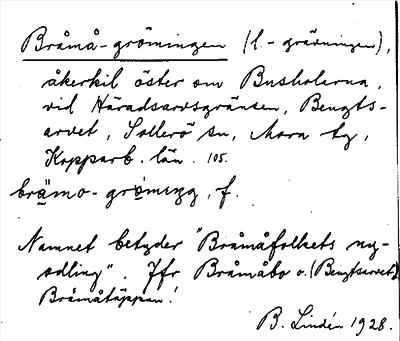 Bråmå-gröningen (l.-grävningen),
åkerkil öster om Busholarna,
vid Häradsarvsgränsen, Bengts-
arvet, Sollerö sn, Mora tg,
Kopparb. län. 105.
brämo-gröning, f.
Namnet betyder "Bråmåfolkets ny-
odling". Jfr Bråmåbo o. (Bengtsarvet)
Bråmåtäppan!
B. Lindén 1928.